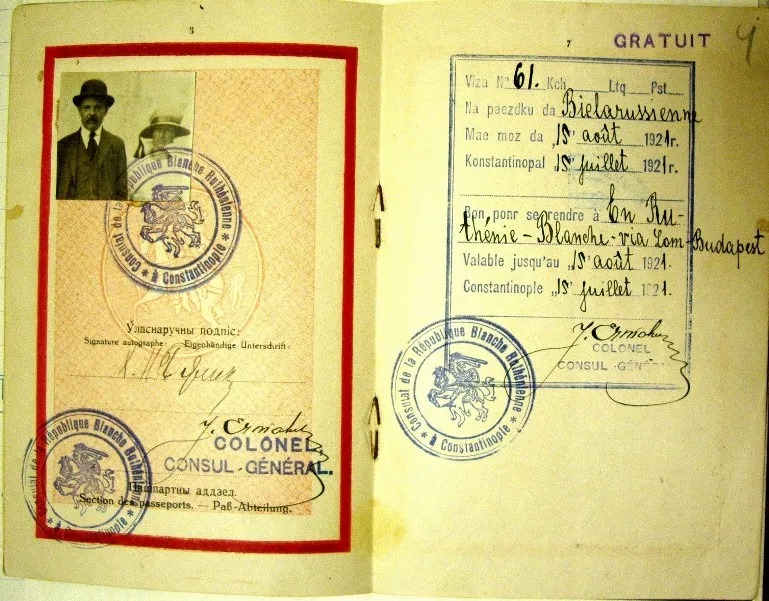 Consulat de la République Blanche Ruthénienne à Constantinople
Уласнаручны подпіс:
Signature autographe: Eigenhändige Unterschrift:
J. Ermak
COLONEL
CONSUL-GÉNÉRAL.
Consulat de la République Blanche Ruthénienne à Constantinople
Пашпартны аддзел.
Section des passeports. — Paß-Abteilung.
7
GRATUIT
4
Viza № 61. Kch Ltq Pst
Na paezdku da Bielarussienne
Mae moz da „15" août 1921r.
Konstantinopal „15" juillet 1921r.
Bon ponr se rendre à En Ru-
thénie-Blanche-via Lom-Budapest
Valable jusqu'au „15" août 1921.
Constantinople „15" juillet 1921.
COLONEL
CONSUL-GÉNÉRAL
Consulat de la République Blanche Ruthénienne à Constantinople